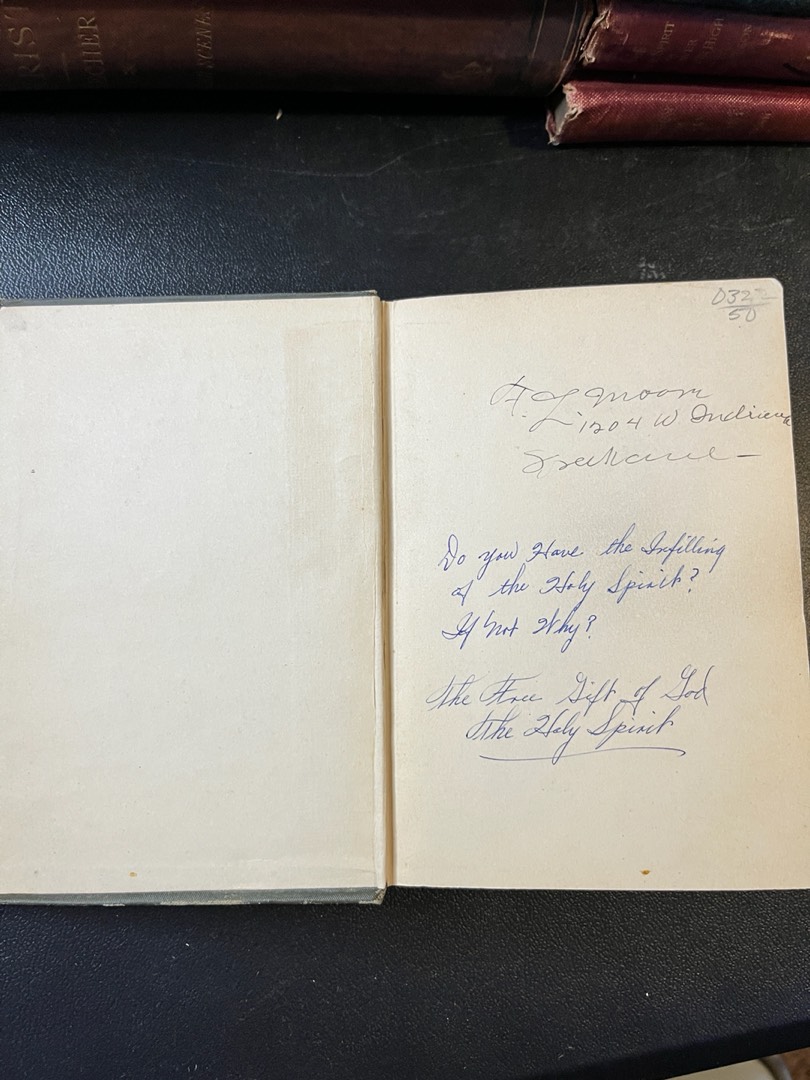 RIST
CHER
D32
50
L. Moon
1204 W Indiana
Spokane
Do you Have the Infilling
of the Holy Spirit?
If Not Why?
The Free Gift of God
The Holy Spirit